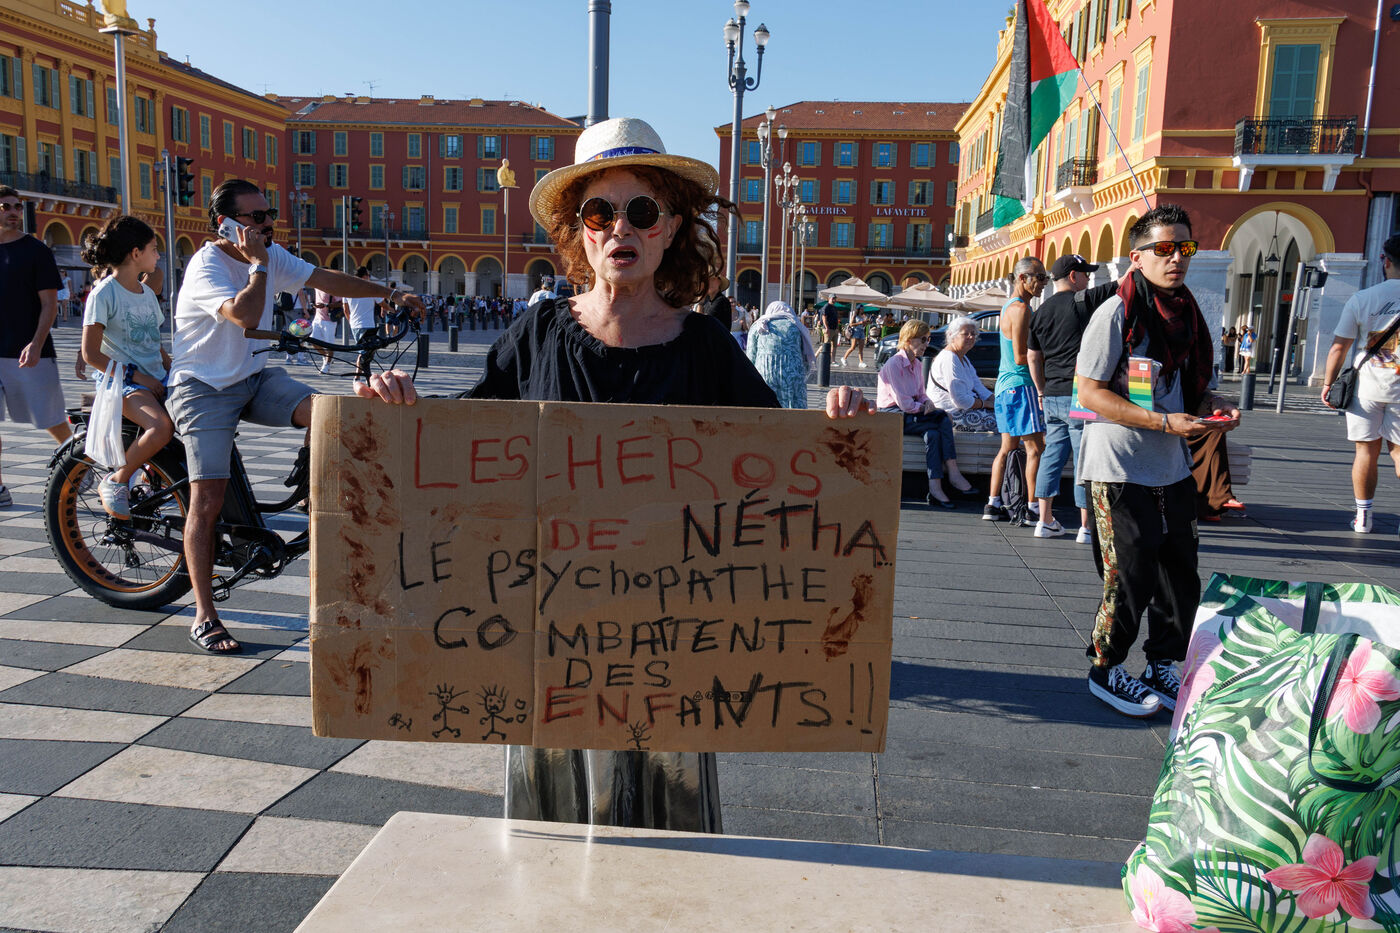 GALERIES LAFAYETTE
LES-HÉROS
DE-NÉTHA..
LE PSYCHOPATHE
COMBATTENT.
DES
ENFANTS!!